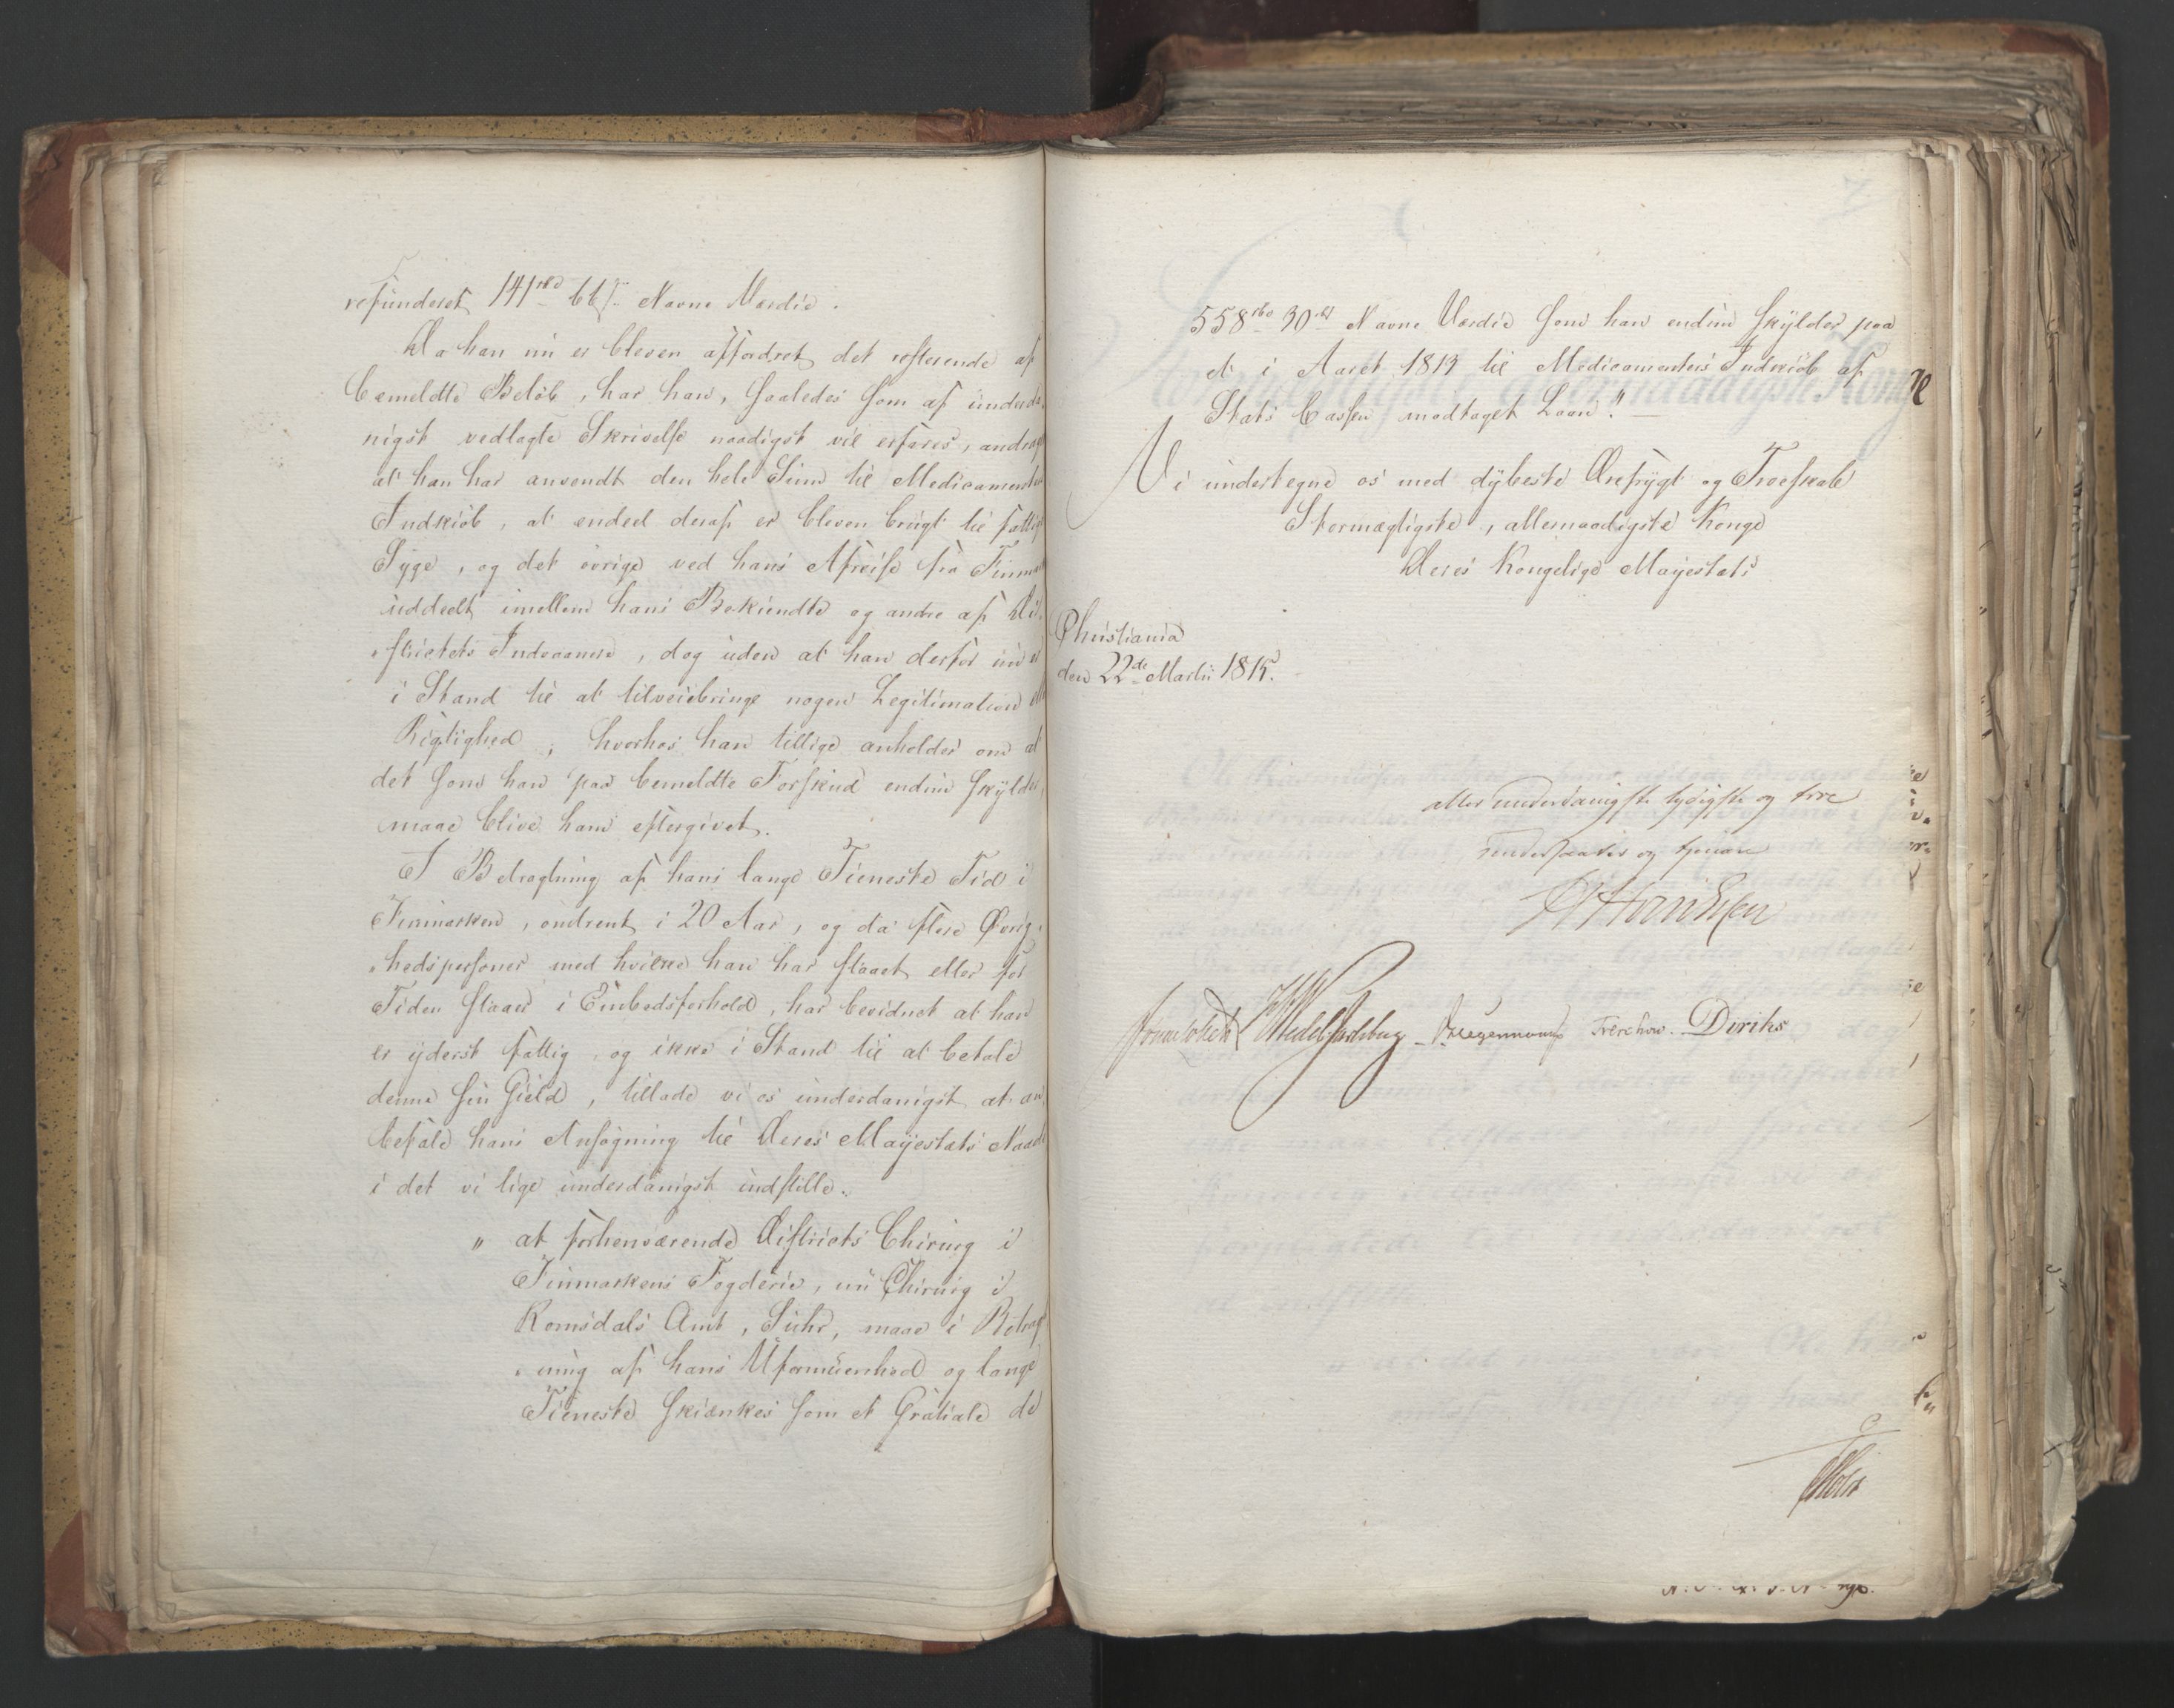 refunderet 141 rbd 66 s Navne Værdie.
Da han nu er bleven affordret det resterende af
bemeldte Beløb, har han, saaledes som af underda-
nigst vedlagte Skrivelse naadigst vil erfares, andraget
at han har anvendt den hele Sum til Medicamenters
Indkiøb, at endeel deraf er bleven brugt til fattige
Syge, og det øvrige ved hans Afreise fra Finmarken
uddeelt imellem hans Bekiendte og andre af Di-
strictets Indvaanere, dog uden at han derfor nu er
i Stand til at tilveiebringe nogen Legitimation eller
Rigtighed; hvorhos han tillige anholder om at
det som han paa bemeldte Forskud endnu skylder,
maae blive ham eftergivet.
I Betragtning af hans lange Tieneste Tid i
Finmarken, omtrent i 20 Aar, og da flere Øvrig-
hedspersoner med hvilke han har staaet eller for
Tiden staaer i Embedsforhold, har bevidnet at han
er yderst fattig, og ikke i Stand til at betale
denne sin Gield, tillade vi os underdanigst at an-
befale hans Ansøgning til Deres Mayestæts Naade
i det vi lige underdanigst indstille:
" at forhenværende Districts Chirurg i
Finmarkens Fogderie, nu Chirurg i
Romsdals Amt, Suhr, maae i Betragt-
ning af hans Uformuenhed og lange
Tieneste skiænkes som et Gratiale de
558 rbd 30 s Navne Værdie som han endnu skylder paa
et i Aaret 1813 til Medicamenters Indkiøb af
Stats Cassen modtaget Laan." —
Vi undertegne os med dybeste Ærefrygt og Troeskab
Stormægtigste, allernaadigste Konge
Deres Kongelige Mayestæts
Christiania
den 22de Martii 1815.
allerunderdanigste lydigste og troe
undersaatter og tjenere
Sommerhielm HWedel Jarlsberg D. Hegermann Treschow. Diriks
Holst